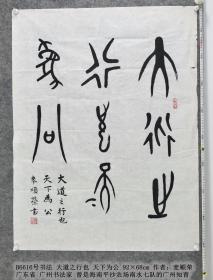 大道之
行也天
下為公
大道之行也
天下為公
麦順荣書
B6616号书法 大道之行也 天下为公 92×68cm 作者:麦顺荣
广东省 广州书法家 曾是海南平沙农场南水七队的广州知青